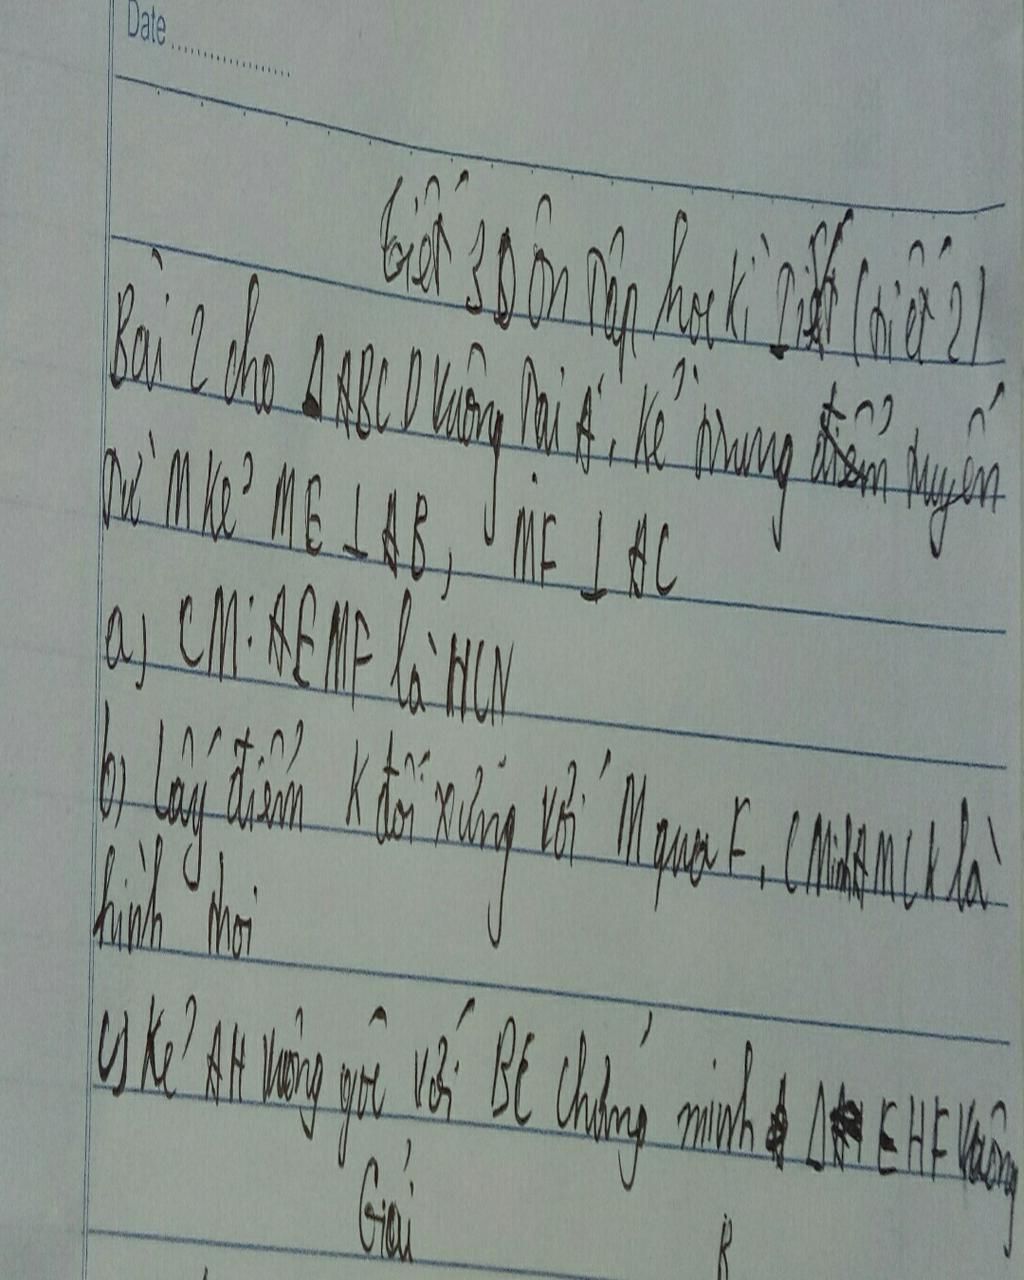 Date
Tiết 30 ôn tập học kì I (tiết 2)
Bài 2 cho ΔABC vuông tại A. Kẻ trung tuyến
từ M kẻ ME ⊥ AB, MF ⊥ AC
a) CM: AEMF là HCN
b) Lấy điểm K đối xứng với M qua F. CMinh AMCK là
hình thoi
c) Kẻ AH vuông góc với BC chứng minh Δ EHF vuông
Giải
B